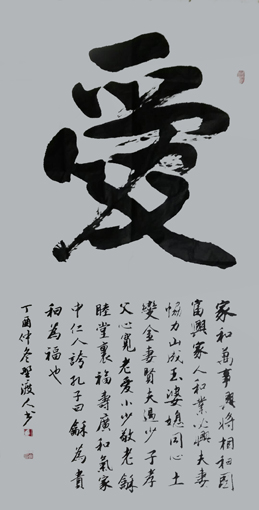 愛
家和萬事興將相和國
富興家人和業必興夫妻
恊力山成玉婆媳同心土
變金妻賢夫禍少子孝
父心寬老愛小少敬老龢
睦堂裏福壽廣和氣家
中仁人誇孔子曰龢為貴
和為福也
丁酉仲冬聖波人书